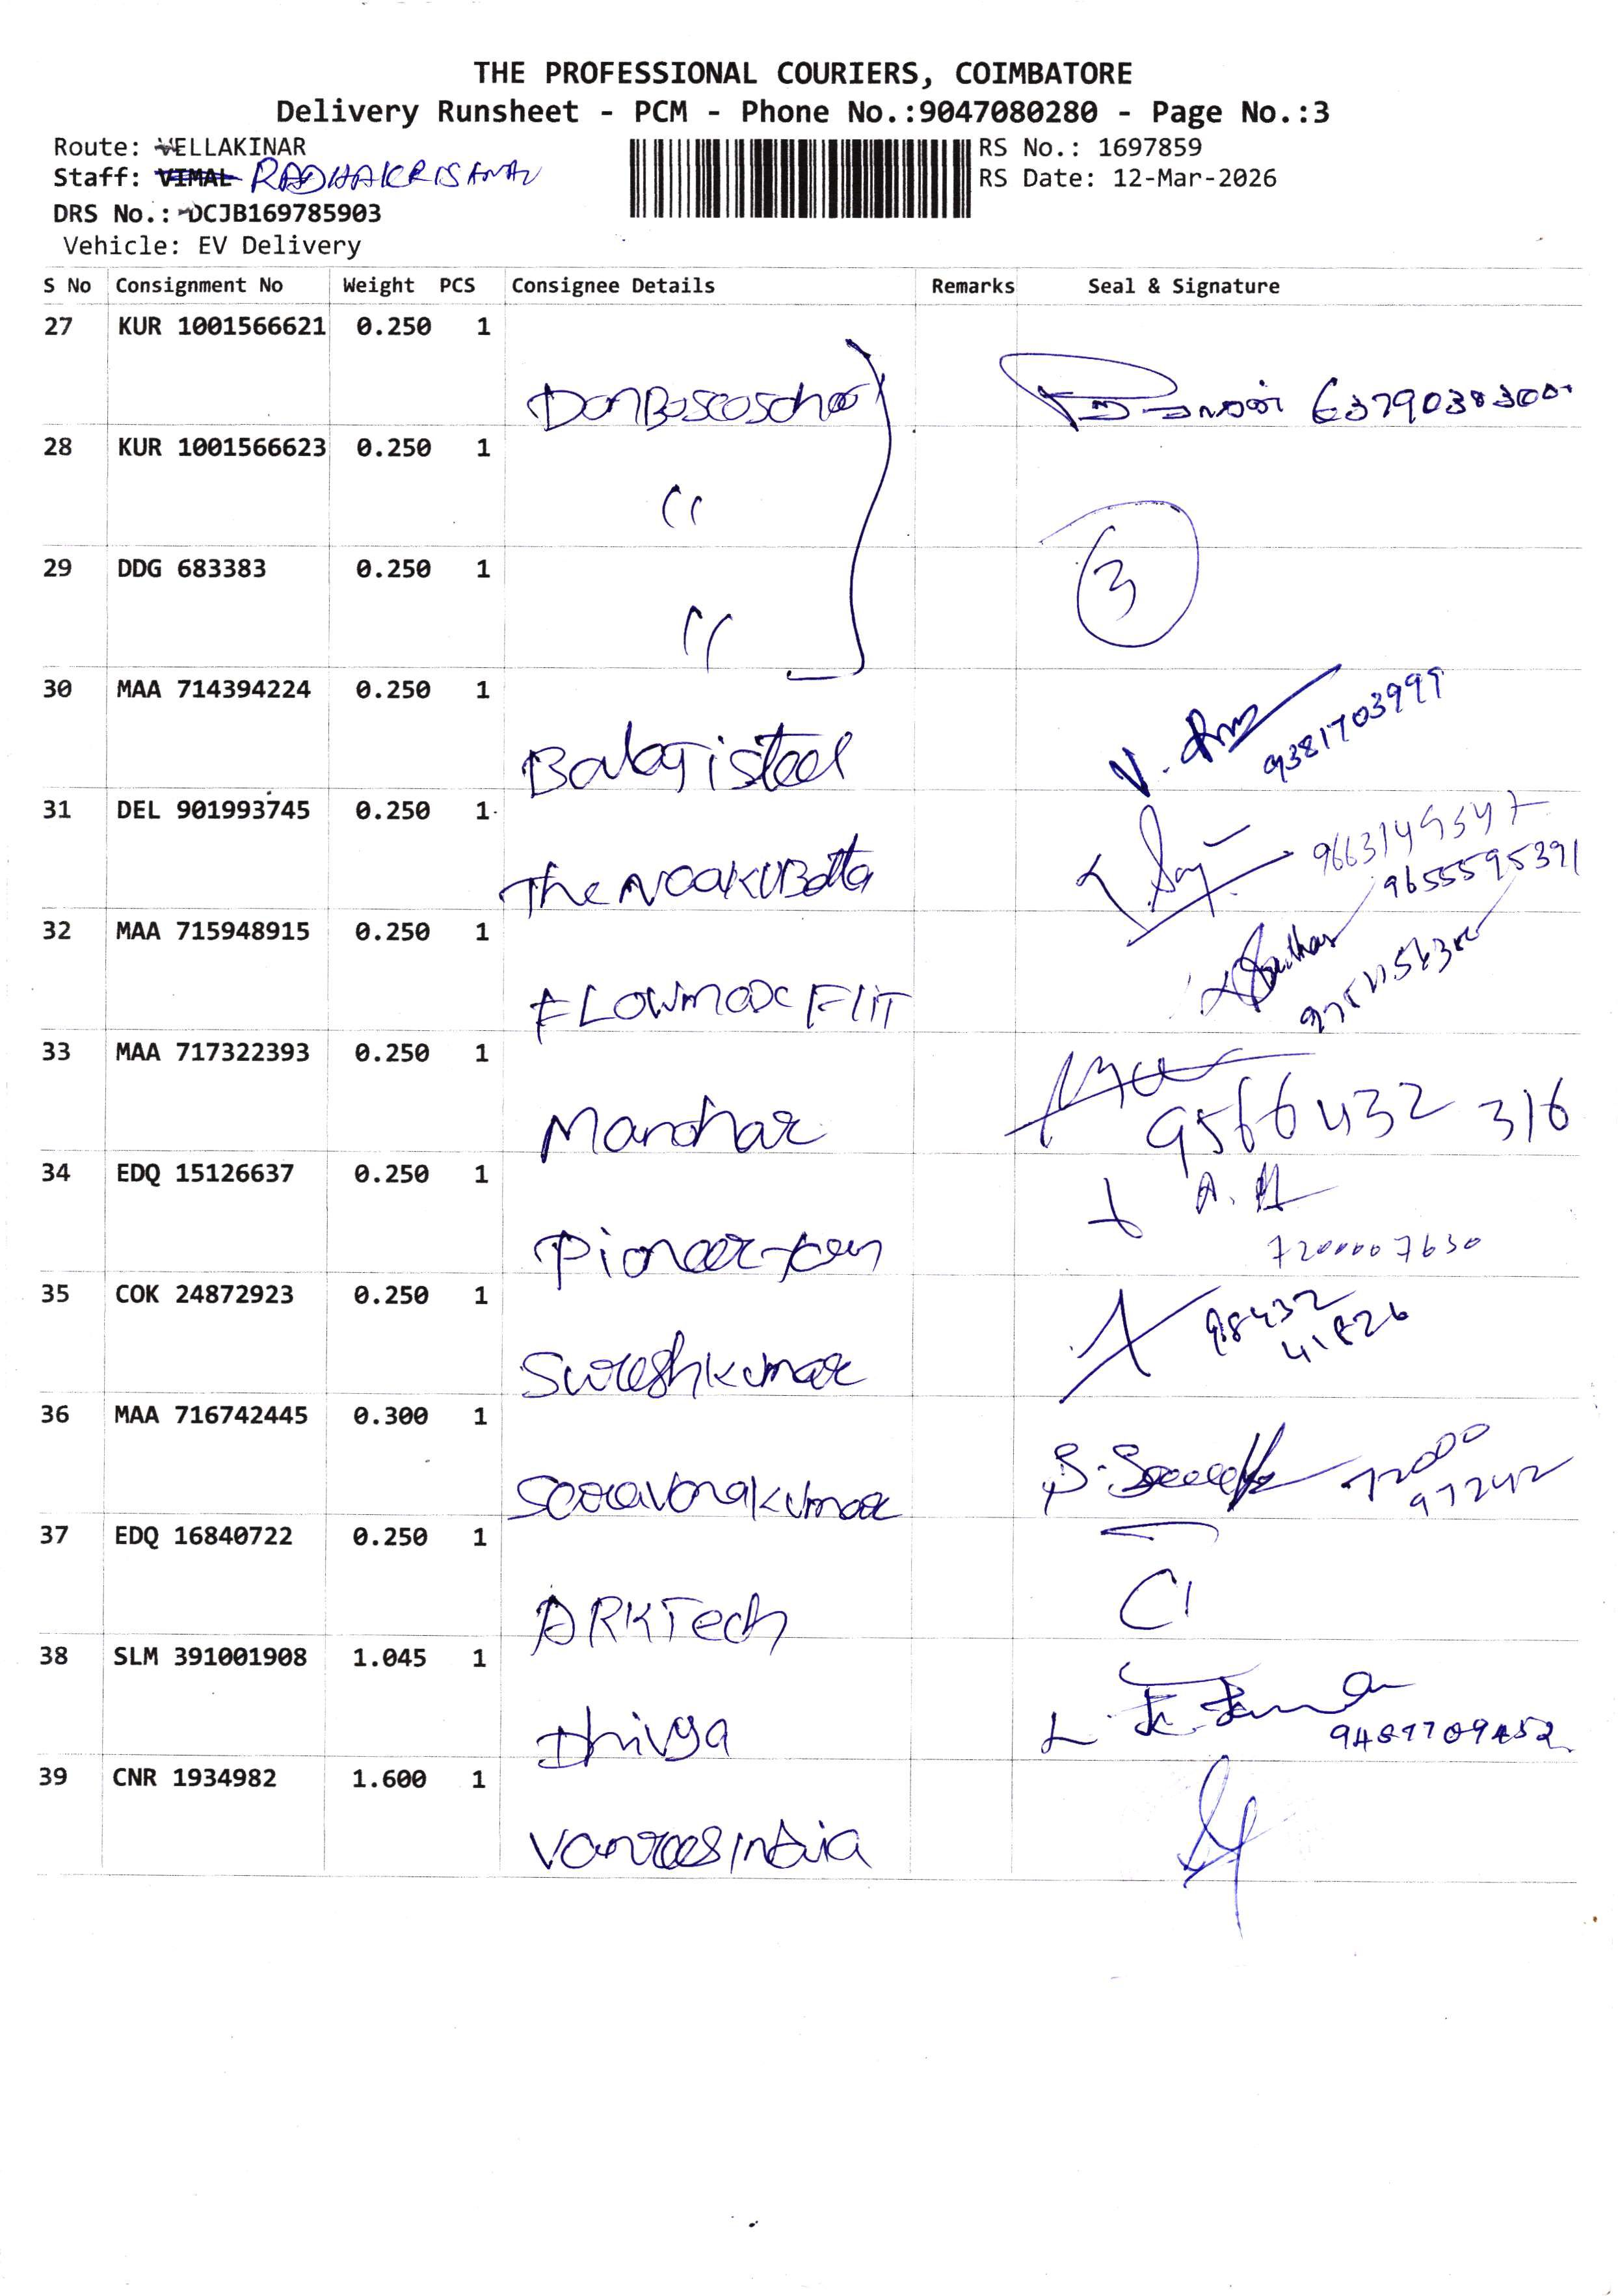 THE PROFESSIONAL COURIERS, COIMBATORE
Delivery Runsheet - PCM - Phone No.:9047080280 - Page No.:3
Route: VELLAKINAR
RS No.: 1697859
Staff: VIMAL RADHAKRISHNAN
RS Date: 12-Mar-2026
DRS No.: DCJB169785903
Vehicle: EV Delivery
S No Consignment No Weight PCS Consignee Details Remarks Seal & Signature
27 KUR 1001566621 0.250 1
DonBoscoschool
28 KUR 1001566623 0.250 1
"
29 DDG 683383 0.250 1
" 3
30 MAA 714394224 0.250 1
Balaji steel 9381703999
31 DEL 901993745 0.250 1
The 9655595391
32 MAA 715948915 0.250 1
FLOWmax
33 MAA 717322393 0.250 1
Manohar 9566432316
34 EDQ 15126637 0.250 1
Pioneer 7200007630
35 COK 24872923 0.250 1
Sureshkumar 98432
41826
36 MAA 716742445 0.300 1
Saravanakumar 72000
97242
37 EDQ 16840722 0.250 1
ARKTech
38 SLM 391001908 1.045 1
Dhivya
39 CNR 1934982 1.600 1
India